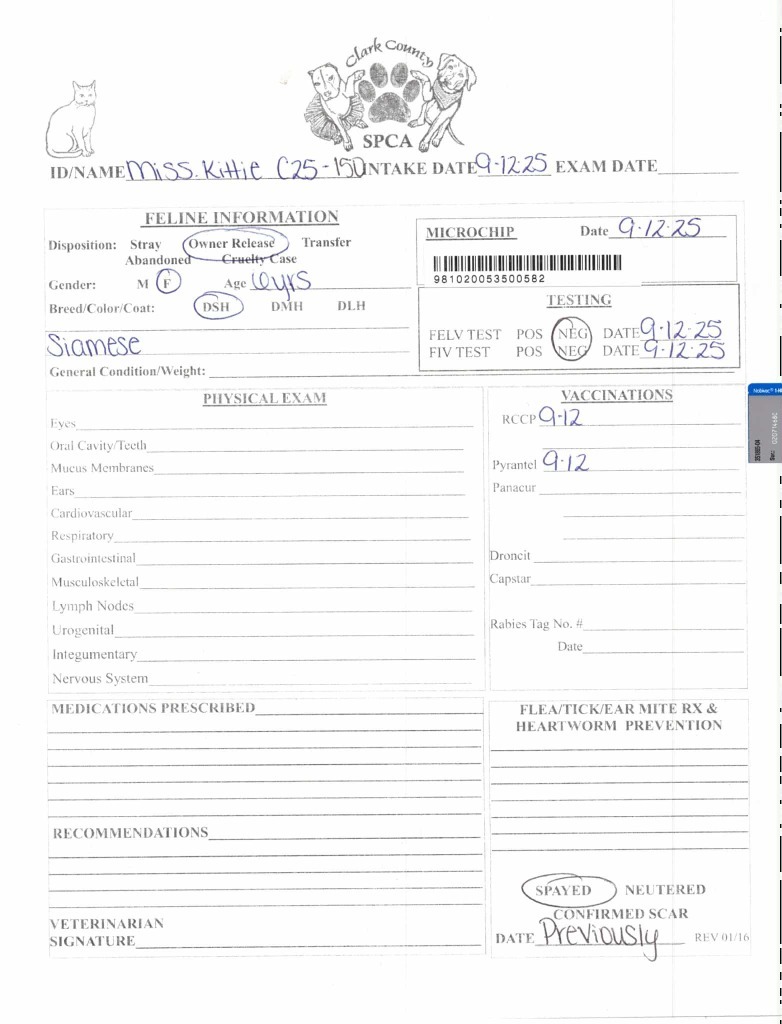 Clark County
SPCA
ID/NAME Miss. Kittie C25-150 INTAKE DATE 9-12-25 EXAM DATE
FELINE INFORMATION
Disposition: Stray Owner Release Transfer
Abandoned Cruelty Case
Gender: M F Age 6yrs
Breed/Color/Coat: DSH DMH DLH
Siamese
General Condition/Weight:
MICROCHIP Date 9-12-25
981020053500582
TESTING
FELV TEST POS NEG DATE 9-12-25
FIV TEST POS NEG DATE 9-12-25
PHYSICAL EXAM
Eyes
Oral Cavity/Teeth
Mucus Membranes
Ears
Cardiovascular
Respiratory
Gastrointestinal
Musculoskeletal
Lymph Nodes
Urogenital
Integumentary
Nervous System
VACCINATIONS
RCCP 9-12
Pyrantel 9-12
Panacur
Droncit
Capstar
Rabies Tag No. #
Date
MEDICATIONS PRESCRIBED
RECOMMENDATIONS
VETERINARIAN
SIGNATURE
FLEA/TICK/EAR MITE RX &
HEARTWORM PREVENTION
SPAYED NEUTERED
CONFIRMED SCAR
DATE Previously REV 01/16